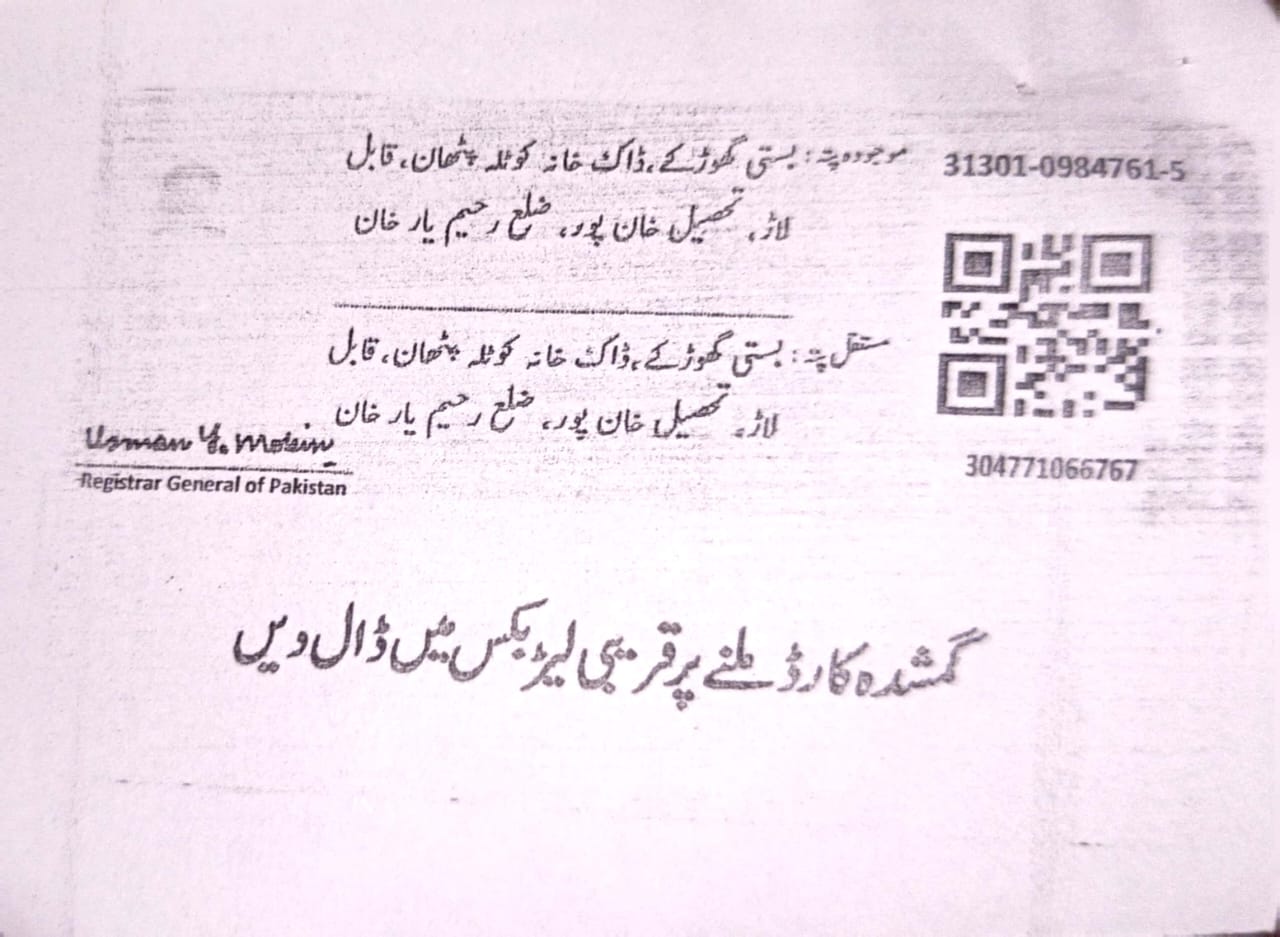 31301-0984761-5
موجودہ پتہ: بستی گھوڑکے، ڈاک خانہ کوٹلہ پٹھان، قابل
لاڑ، تحصیل خان پور، ضلع رحیم یار خان
مستقل پتہ: بستی گھوڑکے، ڈاک خانہ کوٹلہ پٹھان، قابل
لاڑ، تحصیل خان پور، ضلع رحیم یار خان
304771066767
Usman Y. Mobin
Registrar General of Pakistan
گمشدہ کارڈ ملنے پر قریبی لیٹر بکس میں ڈال دیں